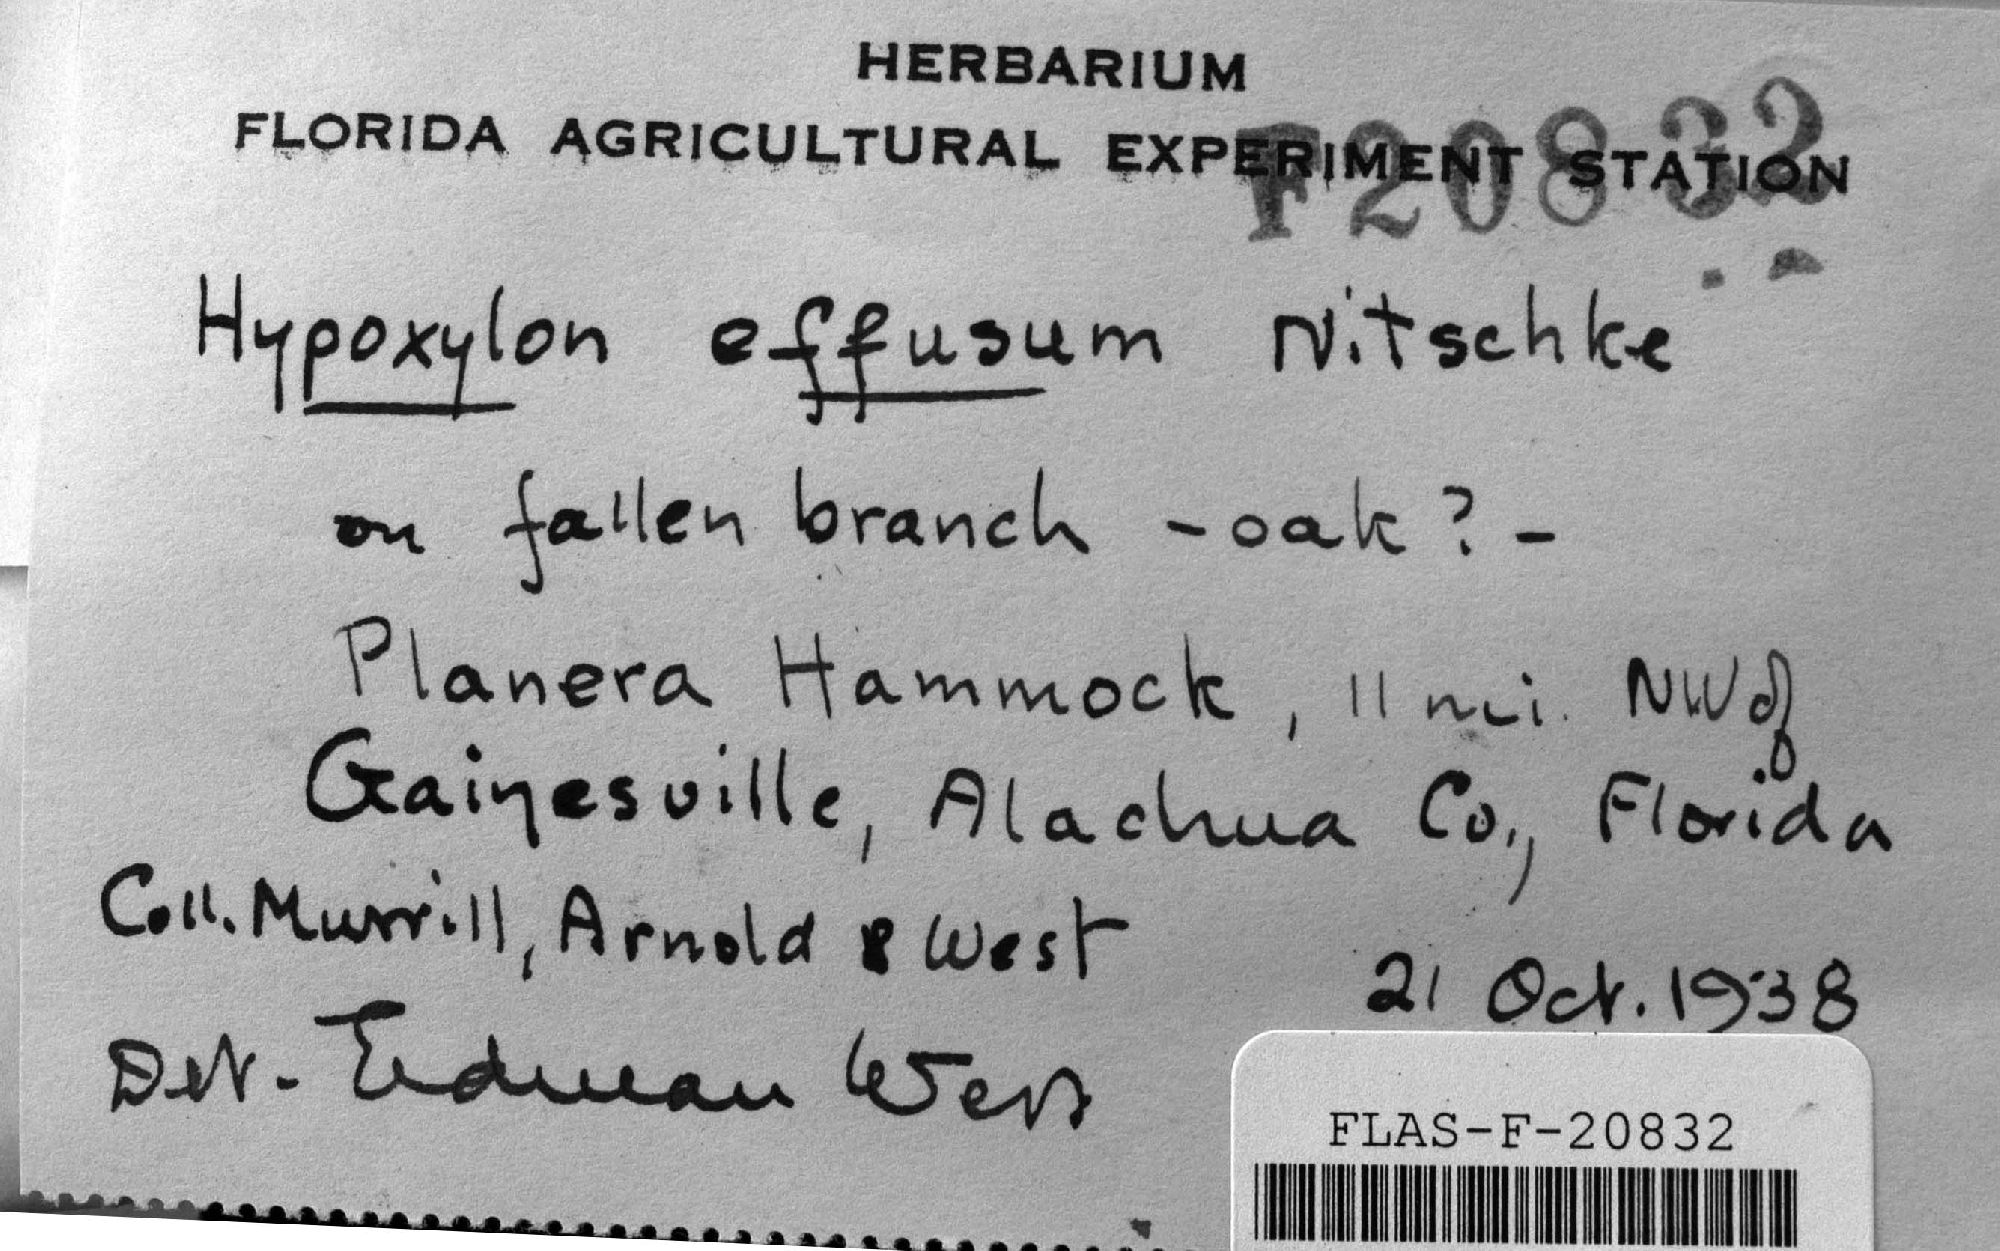 HERBARIUM
FLORIDA AGRICULTURAL EXPERIMENT STATION
F20832
Hypoxylon effusum Nitschke
on fallen branch - oak? -
Planera Hammock, 11 mi. NW of
Gainesville, Alachua Co., Florida
Coll. Murrill, Arnold & West
21 Oct. 1938
Det. Erdman West
FLAS-F-20832